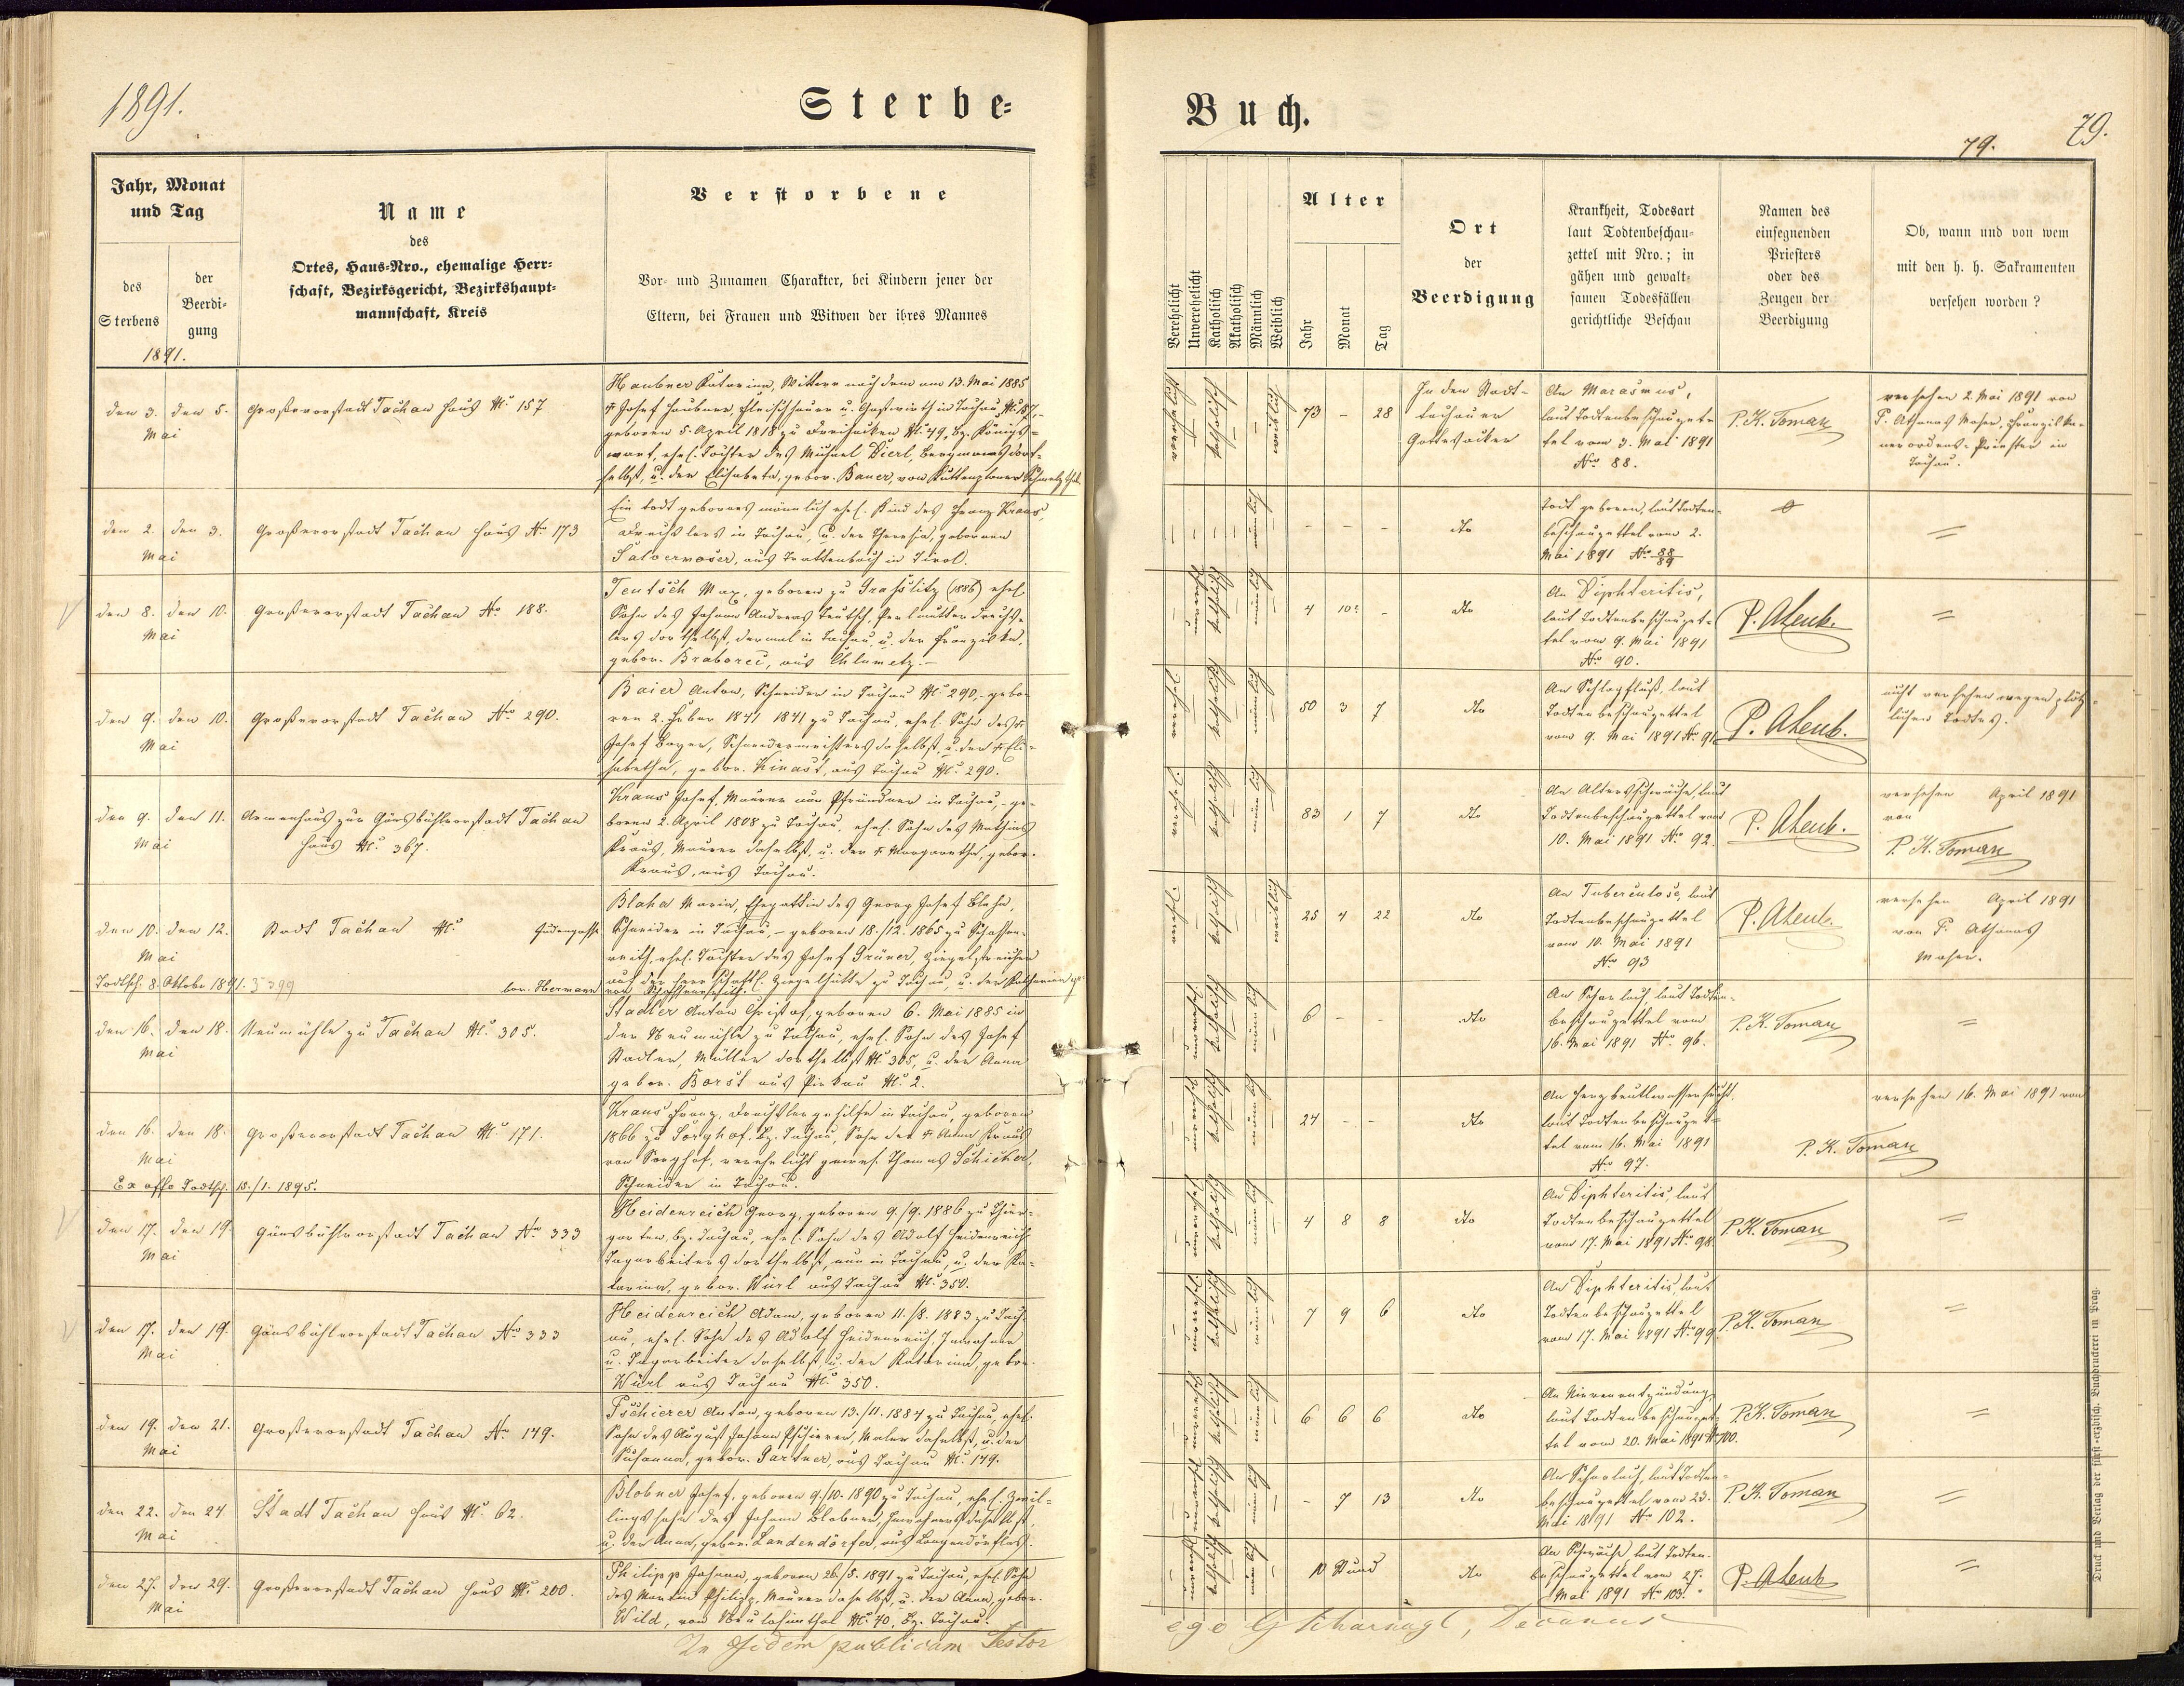 1891.
Sterbe=
Jahr, Monat
und Tag
des
Sterbens
der
Beerdi=
gung
1891.
Name
des
Ortes, Haus=Nro., ehemalige Herr=
schaft, Bezirksgericht, Bezirkshaupt=
mannschaft, Kreis
Verstorbene
Vor= und Zunamen Charakter, bei Kindern jener der
Eltern, bei Frauen und Witwen der ihres Mannes
den 3. den 5.
Mai
Großevorstadt Tachau Haus No 157
Haubner Katarina, Wittwe nach dem am 13. Mai 1885
† Josef Haubner, Fleischhauer u. Gastwirth in Tachau No 157,
geboren 5. April 1818 zu Dreihacken No 49, Bz. Königs=
wart, ehel. Tochter des Michael Dierl, Bergmanns dort=
selbst, u. der Elisabeta, gebor. Bauer, von Kuttenplaner Schmelzthal.
den 2. den 3.
Mai
Großevorstadt Tachau Haus No 173
Ein todt gebornes männlich ehel. Kind des Franz Kraus,
Drechslers in Tachau, u. der Theresia, gebornen
Salvermoser, aus Brattenbach in Tirol.
den 8. den 10.
Mai
Großevorstadt Tachau No 188.
Teutsch Max, geboren zu Graßlitz (1886) ehel.
Sohn des Johann Andreas Teutsch, Perlmutterdrechs=
lers dortselbst, dermal in Tachau, u. der Franziska,
gebor. Braborec, aus Chlumetz.
den 9. den 10.
Mai
Großevorstadt Tachau No 290.
Baier Anton, Schneider in Tachau No 290, gebo=
ren 2. Feber 1841 1841 zu Tachau, ehel. Sohn des †
Josef Bayer, Schneidermeisters daselbst, u. der † Eli=
sabetha, gebor. Kinast, aus Tachau No 290.
den 9. den 11.
Mai
Armenhaus zur Gänsbühlvorstadt Tachau
Haus No 367.
Kraus Josef, Maurer nun Pfründner in Tachau, ge=
boren 2. April 1808 zu Tachau, ehel. Sohn des Mathias
Kraus, Maurer daselbst, u. der † Margaretha, gebor.
Kraus, aus Tachau.
den 10. den 12.
Mai
Stadt Tachau No Judengasse
Todtsch. 8. Oktober 1891. 3599
Blaha Maria, Ehegattin des Georg Josef Blaha,
Schneider in Tachau, geboren 18./12. 1865 zu Schossen=
reith, ehel. Tochter des Josef Grüner, Ziegelstreicher
auf der herrschaftl. Ziegelhütte zu Tachau, u. der Katharina ge=
bor. Hermann von Schossenreith.
den 16. den 18.
Mai
Neumühle zu Tachau No 305.
Stadler Anton Christof, geboren 6. Mai 1885 in
der Neumühle zu Tachau, ehel. Sohn des Josef
Stadler, Müller dortselbst No 305, u. der Anna
gebor. Borst aus Pirkau No 2.
den 16. den 18.
Mai
Großevorstadt Tachau No 171.
Ex offo Todtsch. 15./1. 1895.
Kraus Franz, Drechslergehilfe in Tachau, geboren
1866 zu Sorghof, Bz. Tachau, Sohn der † Anna Kraus
von Sorghof, verehelicht gewes. Thomas Schicker,
Schneider in Tachau.
den 17. den 19.
Mai
Gänsbühlvorstadt Tachau No 333
Heidenreich Georg, geboren 9./9. 1886 zu Thier=
garten, Bz. Tachau, ehel. Sohn des Adolf Heidenreich,
Tagarbeiters dortselbst, nun in Tachau, u. der Ka=
tarina, gebor. Würl aus Tachau No 350.
den 17. den 19.
Mai
Gänsbühlvorstadt Tachau No 333
Heidenreich Adam, geboren 11./8. 1883 zu Tach=
au, ehel. Sohn des Adolf Heidenreich, Inwohner
u. Tagarbeiter daselbst, u. der Katarina, gebor.
Würl aus Tachau No 350.
den 19. den 21.
Mai
Großevorstadt Tachau No 149.
Pschierer Anton, geboren 13./11. 1884 zu Tachau, ehel.
Sohn des August Johann Pschierer, Maler daselbst, u. der
Susanna, gebor. Gartner, aus Tachau No 149.
den 22. den 24.
Mai
Stadt Tachau Haus No 62.
Blobner Josef, geboren 9./10. 1890 zu Tachau, ehel. Zwil=
lingssohn des Johann Blobner, Inwohners daselbst,
u. der Anna, gebor. Landendörfer, aus Langendörflas.
den 27. den 29.
Mai
Großevorstadt Tachau Haus No 200.
Philipp Johann, geboren 26./5. 1891 zu Tachau, ehel. Sohn
des Martin Philipp, Maurer daselbst, u. der Anna, gebor.
Wild, von Neulosimthal No 40, Bz. Tachau.
In fidem publicam Testor
Buch.
79.
79.
Verehelicht
Unverehelicht
Katholisch
Akatholisch
Männlich
Weiblich
Alter
Jahr
Monat
Tag
Ort
der
Beerdigung
Krankheit, Todesart
laut Todtenbeschau=
zettel mit Nro.; in
gähen und gewalt=
samen Todesfällen
gerichtliche Beschau
Namen des
einsegnenden
Priesters
oder des
Zeugen der
Beerdigung
Ob, wann und von wem
mit den h. h. Sakramenten
versehen worden?
katholisch
weiblich
73 - 28
In den Stadt=
tachauer
Gottesacker
An Marasmus,
laut Todtenbeschauzet=
tel vom 3. Mai 1891
Nro 88.
P. K. Toman
versehen 2. Mai 1891 von
P. Athanas Moser, Franziska=
nerordens=Priester in
Tachau.
- - - - männlich
- - -
dto
Todt geboren, laut Todten=
beschauzettel vom 2.
Mai 1891 No 88/89
männlich
4 10 -
dto
An Diphteritis,
laut Todtenbeschauzet=
tel vom 9. Mai 1891
No 90.
männlich
50 3 7
dto
An Schlagfluß, laut
Todtenbeschauzettel
vom 9. Mai 1891 No 91
nicht versehen wegen plötz=
lichen Todtes.
männlich
83 1 7
dto
An Altersschwäche laut
Todtenbeschauzettel vom
10. Mai 1891 No 92.
versehen April 1891
von
P. K. Toman
weiblich
25 4 22
dto
An Tuberculose, laut
Todtenbeschauzettel
vom 10. Mai 1891
No 93
versehen April 1891
von P. Athanas
Moser.
männlich
6 - -
dto
An Scharlach, laut Todten=
beschauzettel vom
16. Mai 1891 No 96.
P. K. Toman
männlich
24 - -
dto
An Herzbeutlwassersucht,
laut Todtenbeschauzet=
tel vom 16. Mai 1891
No 97.
versehen 16. Mai 1891 von
P. K. Toman
männlich
4 8 8
dto
An Diphteritis, laut
Todtenbeschauzettel
vom 17. Mai 1891 No 98.
P. K. Toman
männlich
7 9 6
dto
An Diphteritis, laut
Todtenbeschauzettel
vom 17. Mai 1891 No 99.
P. K. Toman
männlich
6 6 6
dto
An Nierenentzündung,
laut Todtenbeschauzet=
tel vom 20. Mai 1891 No 100.
P. K. Toman
männlich
- 7 13
dto
An Scharlach, laut Todten=
beschauzettel vom 23.
Mai 1891 No 102.
P. K. Toman
männlich
10 Stund
dto
An Schwäche laut Todten=
beschauzettel vom 27.
Mai 1891 No 103.
ego G Scharnagl, Decanus
Druck und Verlag der fürst=erzbisch. Buchdruckerei in Prag.